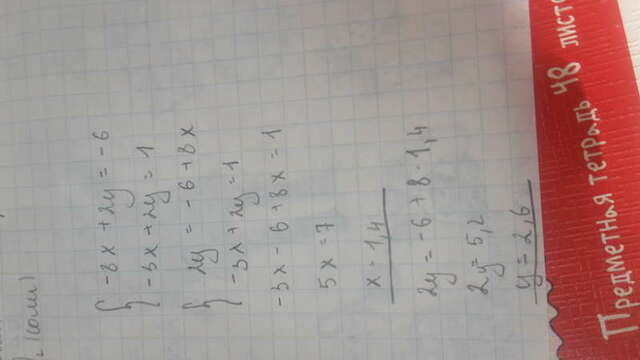 (соли)
-8x + 2y = -6
-3x + 2y = 1
2y = -6 + 8x
-3x + 2y = 1
-3x - 6 + 8x = 1
5x = 7
x = 1,4
2y = -6 + 8 · 1,4
2y = 5,2
y = 2,6
Предметная тетрадь 48 листо